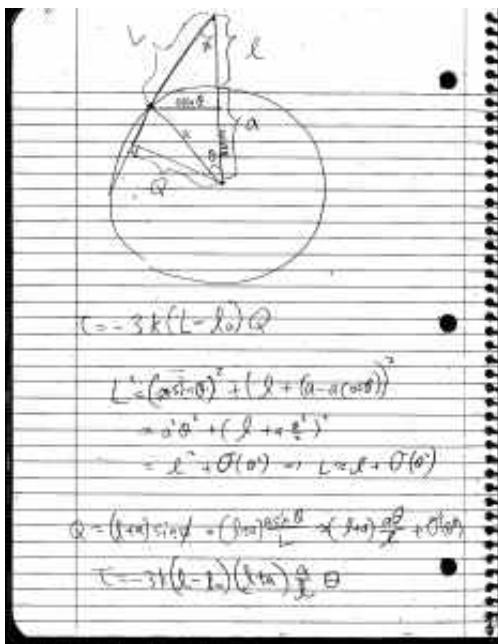 L
l
a sinθ
a
θ
a
Q
τ = -3k(L-l₀)Q
L² = (a sinθ)² + (l + (a - a cosθ))²
= a²θ² + (l + a θ²/2)²
= l² + O(θ²) ⇒ L ≈ l + O(θ²)
Q = (l+a) sinφ = (l+a) a sinθ / L ≈ (l+a) aθ/l + O(θ²)
τ = -3k(l-l₀)(l+a) a/l θ